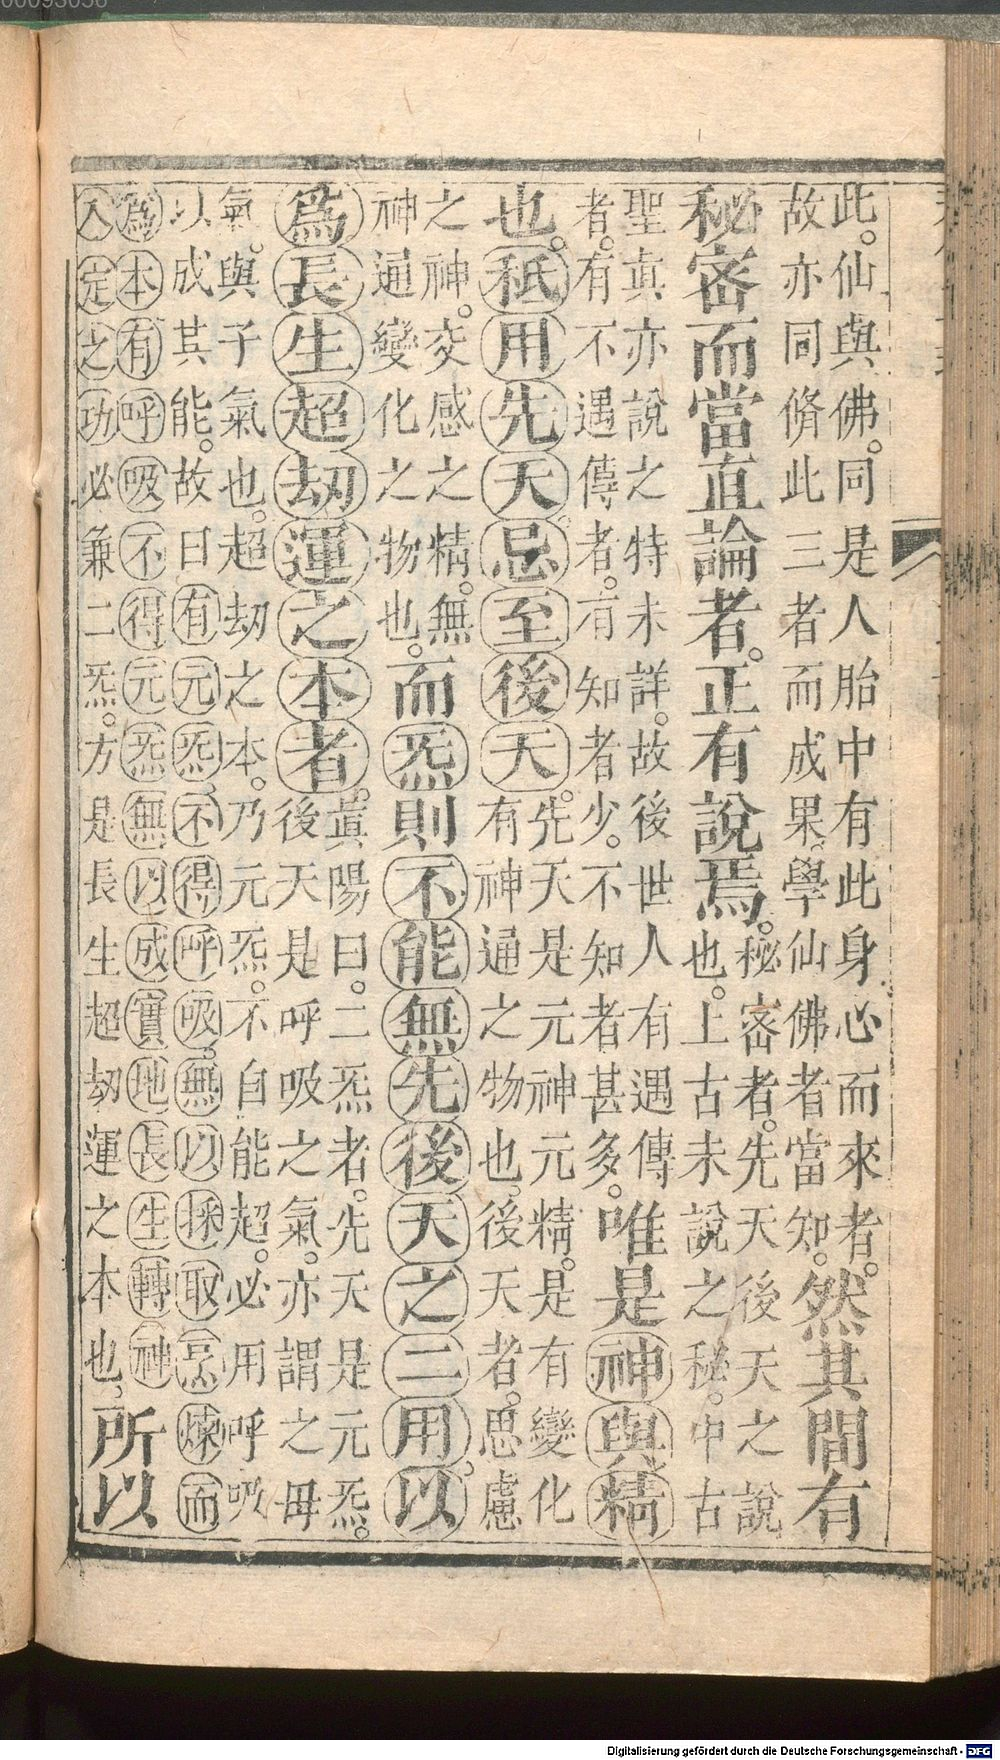 此。仙與佛。同是人胎中有此身心而來者。
故亦同脩此三者而成果。學仙佛者當知。
然其間有
秘密而當直論者。正有說焉。
秘密者。先天後天之說
也。上古未說之秘。中古
聖真亦說之特未詳。故後世人有遇傳
者。有不遇傳者。有知者少。不知者甚多。
唯是神與精
也。秪用先天忌至後天。
先天是元神元精。是有變化
有神通之物也。後天者。思慮
之神。交感之精。無
神通變化之物也。
而炁則不能無先後天之二用。以
為長生超劫運之本者。
真陽曰。二炁者。先天是元炁。
後天是呼吸之氣。亦謂之母
氣。與子氣也。超劫之本。乃元炁。不自能超。必用呼吸
以成其能。故曰有元炁不得呼吸。無以採取烹煉而
為本有呼吸不得元炁無以成實地長生轉神
入定之功必兼二炁。方是長生超劫運之本也。
所以
Digitalisierung gefördert durch die Deutsche Forschungsgemeinschaft - DFG